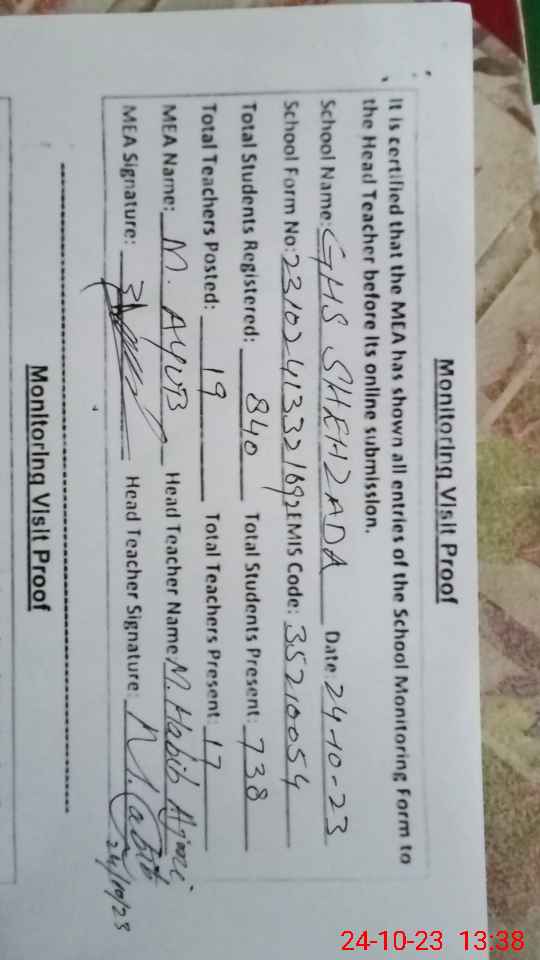 Monitoring Visit Proof
It is certified that the MEA has shown all entries of the School Monitoring Form to
the Head Teacher before its online submission.
School Name: GHS SHEHZADA Date: 24-10-23
School Form No: EMIS Code: 35210054
Total Students Registered: 840 Total Students Present: 738
Total Teachers Posted: 19 Total Teachers Present: 17
MEA Name: M. AYUB Head Teacher Name: M. Habib
MEA Signature: Head Teacher Signature: M. Habib
24/10/23
Monitoring Visit Proof
24-10-23 13:38